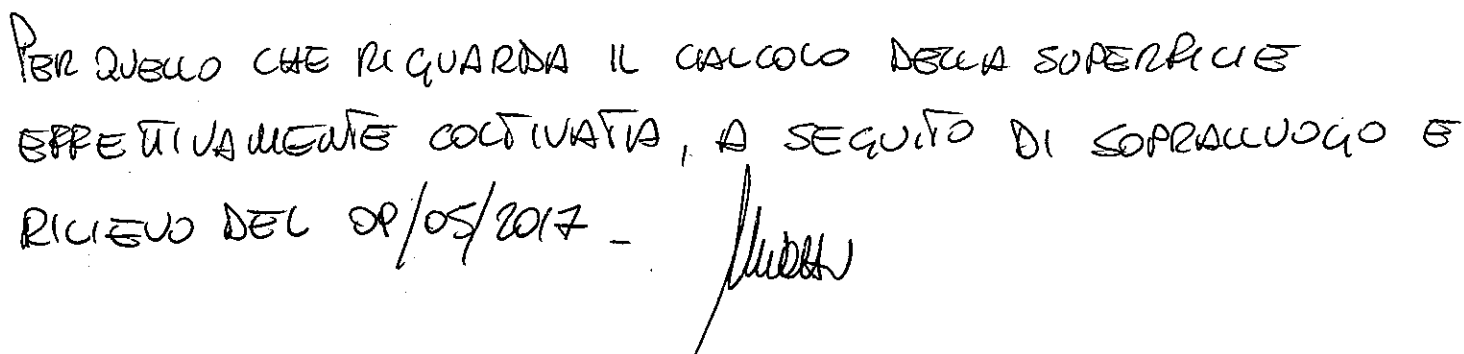 PER QUELLO CHE RIGUARDA IL CALCOLO DELLA SUPERFICIE
EFFETTIVAMENTE COLTIVATA, A SEGUITO DI SOPRALLUOGO E
RILIEVO DEL 09/05/2017 -